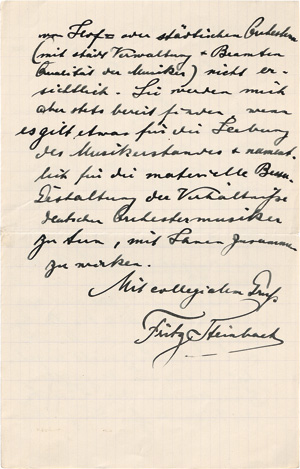 Hof= oder städtischen Orchestern
(mit staatl Verwaltung + Beamten
Qualität der Musiker) nicht er-
sichtlich. Sie werden mich
aber stets bereit finden, wenn
es gilt, etwas für die Hebung
des Musikerstandes + nament-
lich für die materielle Besser-
Gestaltung der Verhältnisse
deutscher Orchestermusiker
zu tun, mit Ihnen zusammen
zu wirken.
Mit collegialem Gruß
Fritz Steinbach